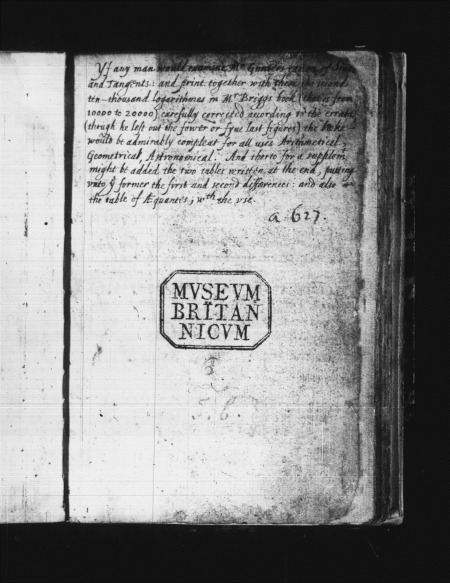 Yf any man would examine Mr Gunters canon of Sines
and Tangents: and print together with them the second
ten-thousand logarithmes in Mr Briggs book (that is from
10000 to 20000) carefully corrected according to the errata
(though he left out the fower or fyue last figures) the booke
would be admirably compleat for all uses Arithmetical,
Geometrical, Astronomical. And therto for a supplem.
might be added the two tables written at the end, putting
vnto yͤ former the first and second differences: and also
the table of Æquantes, wth the vse.
a 627.
MVSEVM
BRITAN
NICVM